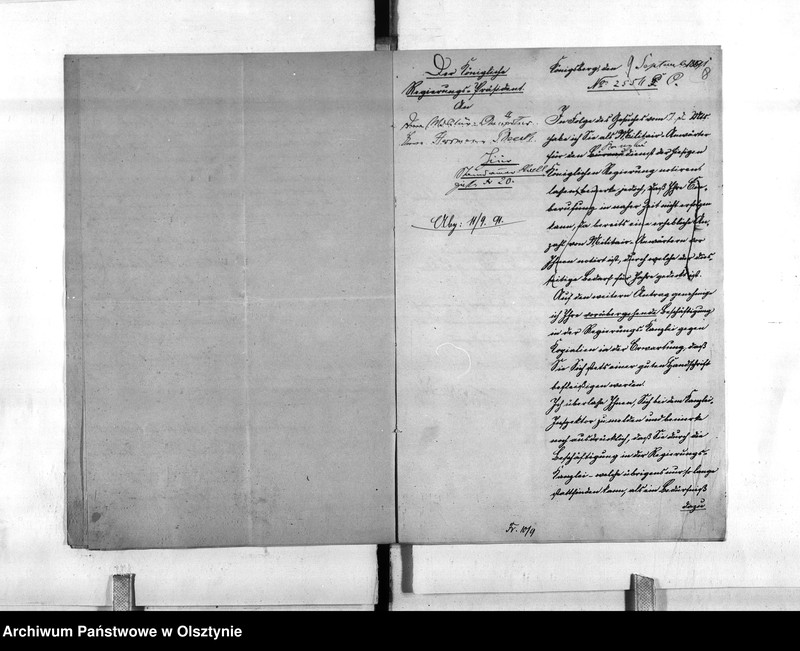 Der Königliche
Regierungs-Präsident.
An
den Militär-Anwärter
Herrn Hermann
Hier
20.
Abg: 11/9. 91.
Königsberg, den 9 September 1891
8
No 2554 P. C.
In Folge des Gesuches vom 7. d. Mts.
habe ich Sie als Militair-Anwärter
Kanzlei
für den Bureaudienst der hiesigen
Königlichen Regierung notiren
lassen, bemerke jedoch, daß Ihre Ein-
berufung in naher Zeit nicht erfolgen
kann, da bereits eine erhebliche An-
zahl von Militair-Anwärtern vor
Ihnen notirt ist, durch welche der dies-
seitige Bedarf für Jahre gedeckt ist.
Auf den weitern Antrag genehmige
ich Ihre vorübergehende Beschäftigung
in der Regierungs Kanzlei gegen
Kopialien in der Erwartung, daß
Sie Sich stets einer guten Handschrift
befleißigen werden.
Ich überlasse Ihnen, Sich bei dem Kanzlei-
Inspektor zu melden und bemerke
noch ausdrücklich, daß Sie durch die
Beschäftigung in der Regierungs-
Kanzlei – welche übrigens nur so lange
stattfinden kann, als ein Bedürfniß
dazu
10/9
Archiwum Państwowe w Olsztynie